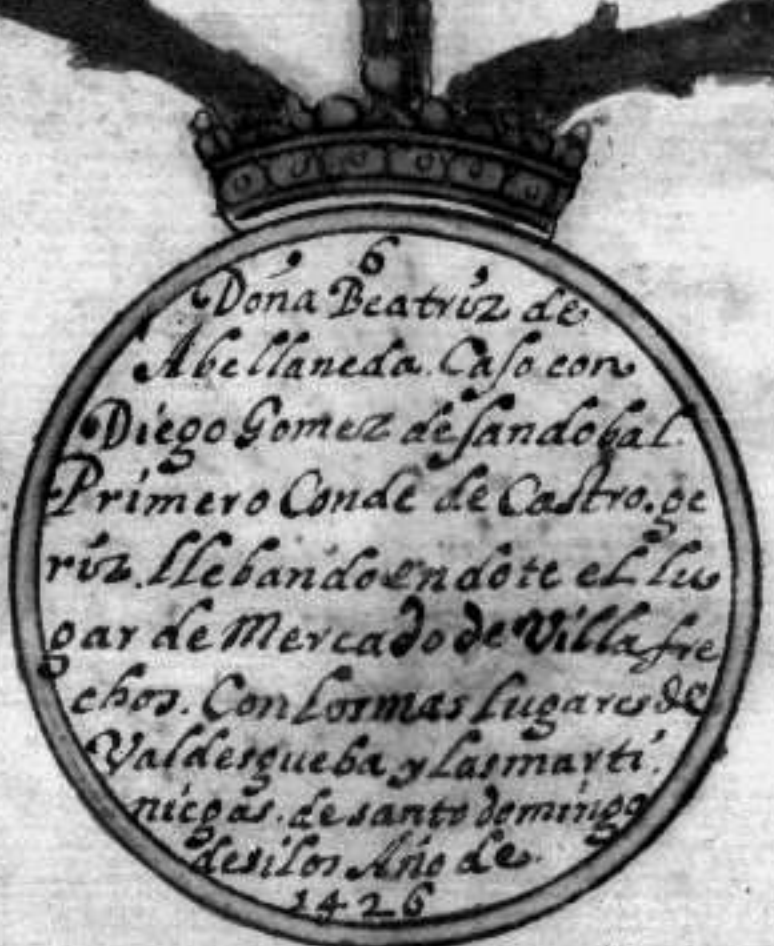 6
Doña Beatriz de
Abellaneda. Caso con
Diego Gomez de sandobal.
Primero Conde de Castro.ge
riz. llebando en dote el lu
gar de Mercado de Villa fre
chos. Con los mas lugares de
Valdesgueba y las marti
niegas. de santo domingo
de silos Año de
1426